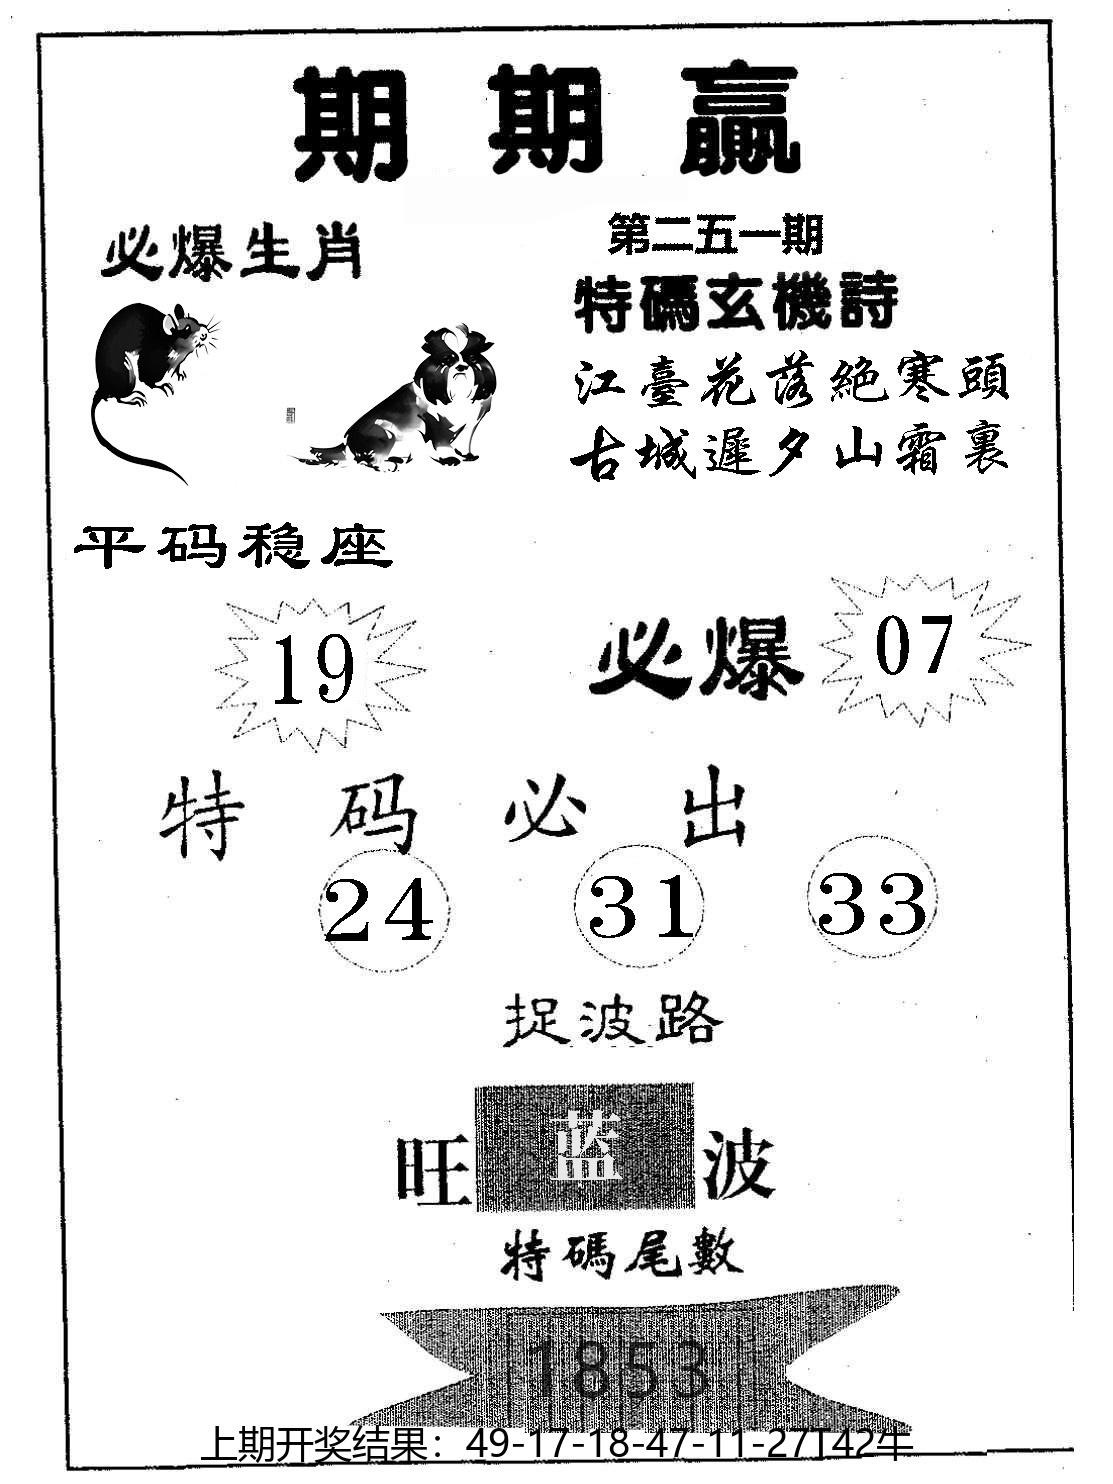 期期贏
必爆生肖
第二五一期
特碼玄機詩
江臺花落絶寒頭
古城遲夕山霜裏
平码稳座
19
必爆
07
特码必出
24 31 33
捉波路
旺蓝波
特碼尾數
1853
上期开奖结果：49-17-18-47-11-27T42牛